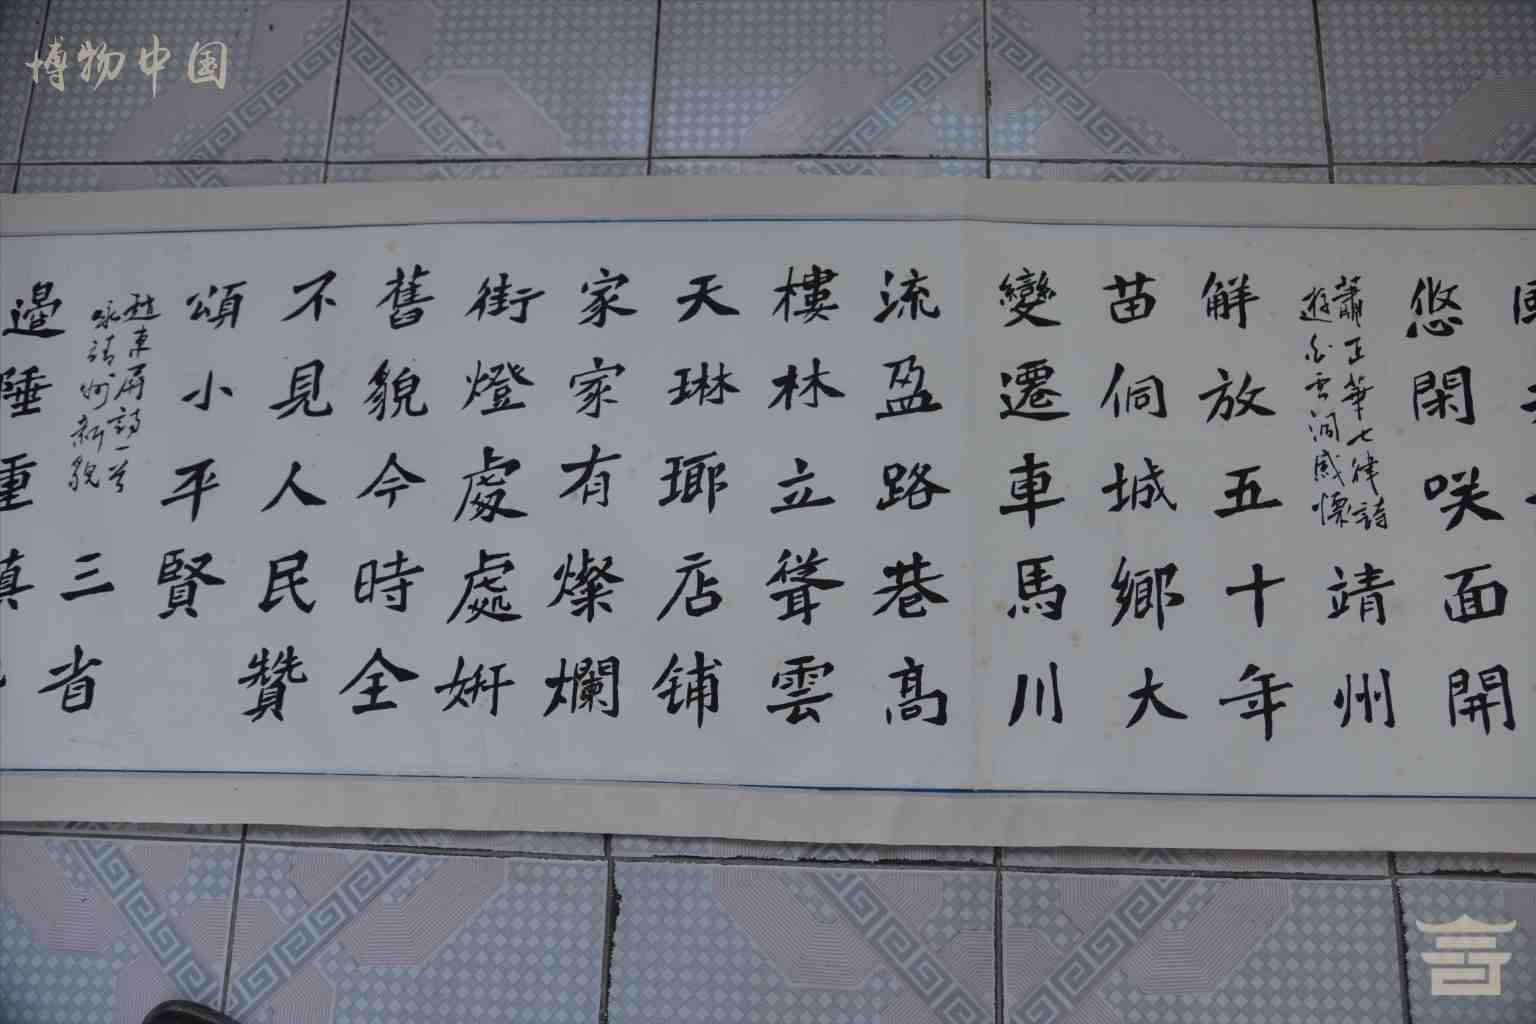 博物中国
悠閑咲面開
蕭正華七律詩
遊白雲洞感懷
靖州
解放五十年
苗侗城鄉大
變遷車馬川
流盈路巷高
樓林立聳雲
天琳瑯店铺
家家有燦爛
街燈處處妍
舊貌今時全
不見人民贊
頌小平賢
趙東屏詩一首
咏靖州新貌
三省
邊陲重鎮